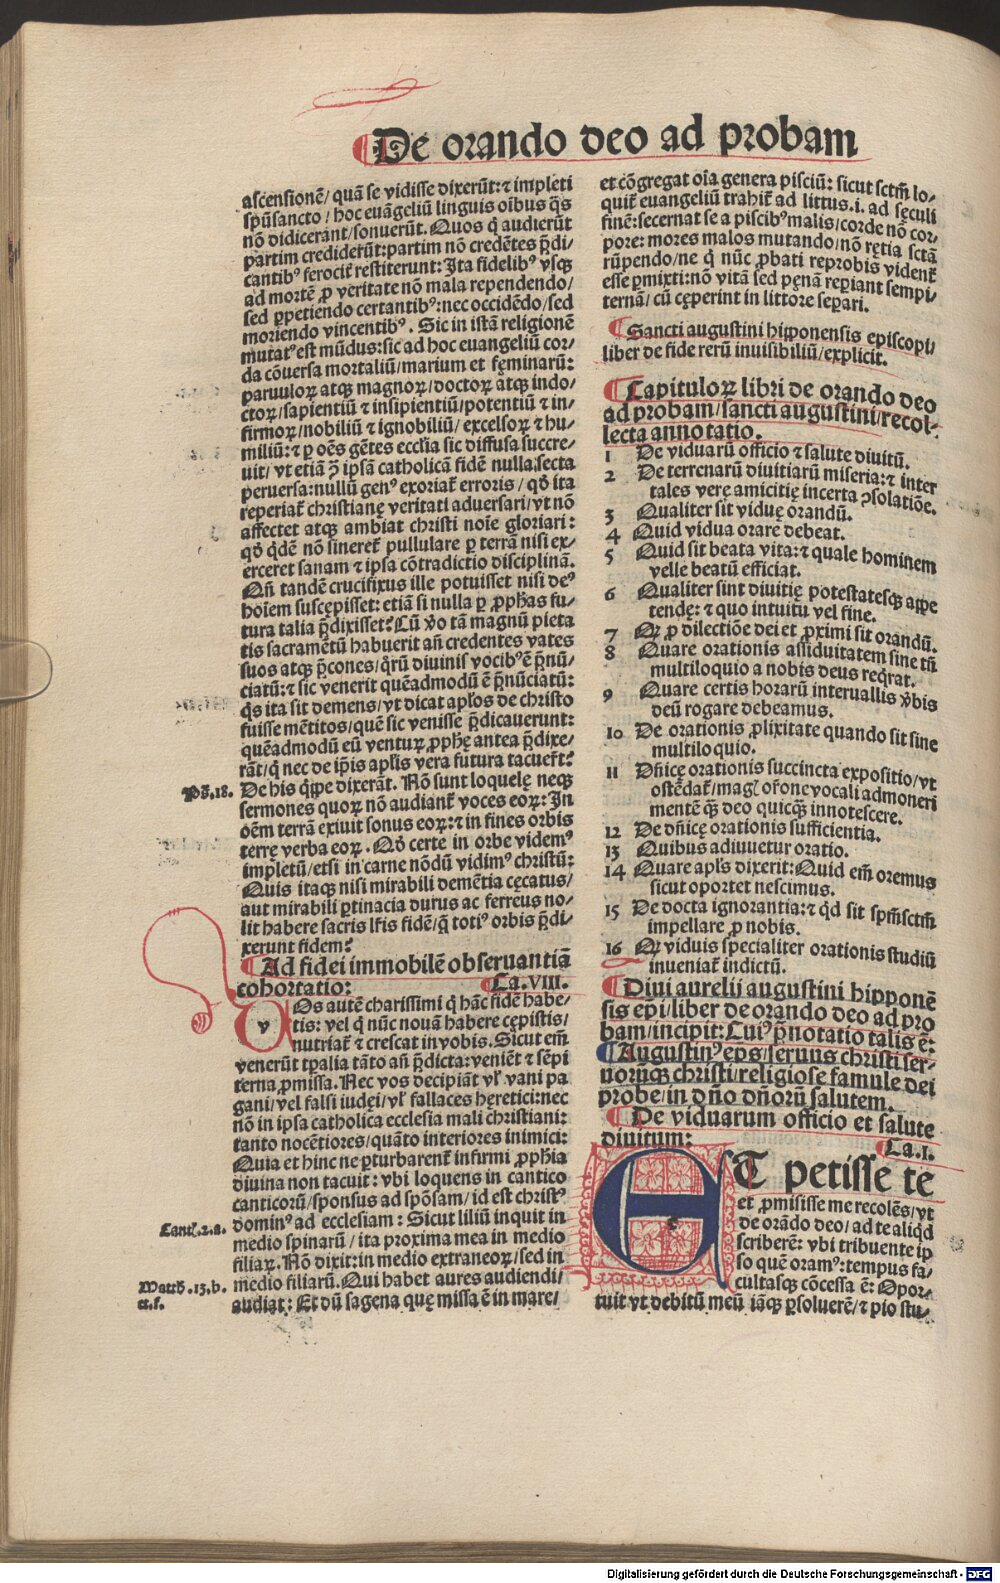 De orando deo ad probam
ascensionē/ quā se vidisse dixerūt: ⁊ impleti
spūsancto/ hoc euāgeliū linguis oībus q̄s
nō didicerant/ sonuerūt. Quos q̄ audierūt
partim crediderūt: partim nō credētes p̄di⸗
cantibꝰ ferocit̄ restiterunt: Ita fidelibꝰ vsqꝫ
ad mortē ꝓ veritate nō mala rependendo/
sed ꝑpetiendo certantibꝰ: nec occidēdo/ sed
moriendo vincentibꝰ. Sic in istā religionē
mutatꝰ est mūdus: sic ad hoc euangeliū cor⸗
da cōuersa mortaliū/ marium et fęminarū:
paruuloꝝ atqꝫ magnoꝝ/ doctoꝝ atqꝫ indo⸗
ctoꝝ/ sapientiū ⁊ insipientiū/ potentiū ⁊ in⸗
firmoꝝ/ nobiliū ⁊ ignobiliū/ excelsoꝝ ⁊ hu⸗
miliū: ⁊ ꝑ oēs gētes ecclīa sic diffusa succre⸗
uit/ vt etiā ꝯ̄ ipsā catholicā fidē nulla secta
peruersa: nullū genꝰ exoriat̄ erroris/ qđ ita
reperiat̄ christianę veritati aduersari/ vt nō
affectet atqꝫ ambiat christi noīe gloriari:
qđ q̇dē nō sineret̄ pullulare ꝑ terrā nisi ex⸗
erceret sanam ⁊ ipsa cōtradictio disciplinā.
Qn̄ tandē crucifixus ille potuisset nisi deꝰ
hoīem suscępisset: etiā si nulla ꝑ ꝓphās fu⸗
tura talia p̄dixisset? Cū v̊o tā magnū pieta
tis sacramētū habuerit an̄ credentes vates
suos atqꝫ p̄cones/ q̊rū diuinis vocibꝰ ē p̄nū⸗
ciatū: ⁊ sic venerit quēadmodū ē p̄nūciatū:
q̇s ita sit demens/ vt dicat aplōs de christo
fuisse mētitos/ quē sic venisse p̄dicauerunt:
quēadmodū eū venturꝝ ꝓphę antea p̄dixe⸗
rāt/ q̄ nec de ip̄is aplīs vera futura tacuer̄t?
Ps̄.18. De his q̇ppe dixerāt. Nō sunt loquelę neqꝫ
sermones quoꝝ nō audiant̄ voces eoꝝ: In
oēm terrā exiuit sonus eoꝝ: ⁊ in fines orbis
terrę verba eoꝝ. Qđ certe in orbe videmꝰ
impletū/ etsi in carne nōdū vidimꝰ christū:
Quis itaqꝫ nisi mirabili demētia cęcatus/
aut mirabili ꝑtinacia durus ac ferreus no⸗
lit habere sacris lr̄is fidē/ q̄ totiꝰ orbis p̄di⸗
xerunt fidem?
Ad fidei immobilē obseruantiā
cohortatio: Ca.VIII.
VOs autē charissimi q̇ hāc fidē habe⸗
tis: vel q̇ nūc nouā habere cępistis/
nutriat̄ ⁊ crescat in vobis. Sicut em̄
venerūt tp̄alia tāto an̄ p̄dicta: veniēt ⁊ sēpi
terna ꝓmissa. Nec vos decipiāt vl̄ vani pa
gani/ vel falsi iudęi/ vl̄ fallaces heretici: nec
nō in ipsa catholica ecclesia mali christiani:
tanto nocētiores/ quāto interiores inimici:
Quia et hinc ne ꝑturbarent̄ infirmi ꝓphīa
diuina non tacuit: vbi loquens in cantico
canticorū/ sponsus ad spōsam/ id est christꝰ
Cant̄.2.a. dominꝰ ad ecclesiam: Sicut liliū inquit in
medio spinarū/ ita proxima mea in medio
filiaꝝ. Nō dixit: in medio extraneoꝝ/ sed in
Matth̄.13.b. medio filiarū. Qui habet aures audiendi/
et.f. audiat: Et dū sagena quę missa ē in mare/
et cōgregat oīa genera pisciū: sicut sctm̄ lo⸗
quit̄ euangeliū trahit̄ ad littus.i. ad sęculi
finē: secernat se a piscibꝰ malis/ corde nō cor⸗
pore: mores malos mutando/ nō rętia sctā
rūpendo/ ne q̇ nūc ꝓbati reprobis vident̄
esse ꝑmixti: nō vitā sed pęnā reꝑiant sempi⸗
ternā/ cū cęperint in littore seꝑari.
Sancti augustini hipponensis episcopi/
liber de fide rerū inuisibiliū/ explicit.
Capituloꝝ libri de orando deo
ad probam/ sancti augustini/ recol⸗
lecta annotatio.
1 De viduarū officio ⁊ salute diuitū.
2 De terrenarū diuitiarū miseria: ⁊ inter
tales verę amicitię incerta ꝯsolatiōe.
3 Qualiter sit viduę orandū.
4 Quid vidua orare debeat.
5 Quid sit beata vita: ⁊ quale hominem
velle beatū efficiat.
6 Qualiter sint diuitię potestatesqꝫ appe
tendę: ⁊ quo intuitu vel fine.
7 Qꝛ ꝓ dilectiōe dei et ꝓximi sit orandū.
8 Quare orationis assiduitatem sine tn̄
multiloquio a nobis deus req̇rat.
9 Quare certis horarū interuallis v̊bis
deū rogare debeamus.
10 De orationis ꝓlixitate quando sit sine
multiloquio.
11 Dn̄icę orationis succincta expositio/ vt
ostēdat̄/ mag̃ or̄one vocali admoneri
mentē qꝫ̄ deo quicqꝫ innotescere.
12 De dn̄icę orationis sufficientia.
13 Quibus adiuuetur oratio.
14 Quare apl̄s dixerit: Quid em̄ oremus
sicut oportet nescimus.
15 De docta ignorantia: ⁊ qđ sit spm̄sctm̄
impellare ꝓ nobis.
16 Qꝛ viduis specialiter orationis studiū
inueniat̄ indictū.
Diui aurelii augustini hipponē
sis ep̄i/ liber de orando deo ad pro
bam/ incipit: Cuiꝰ p̄notatio talis ē:
Augustinꝰ ep̄s/ seruus christi ser⸗
uorūqꝫ christi/ religiose famule dei
probe/ in dn̄o dn̄orū salutem.
De viduarum officio et salute
diuitum: Ca.I.
ET petisse te
et ꝓmisisse me recolēs/ vt
de orādo deo/ ad te aliq̇d
scriberē: vbi tribuente ip
so quē oramꝰ: tempus fa⸗
cultasqꝫ cōcessa ē: Opor⸗
tuit vt debitū meū iāqꝫ ꝑsoluerē/ ⁊ pio stu⸗
Digitalisierung gefördert durch die Deutsche Forschungsgemeinschaft - DFG